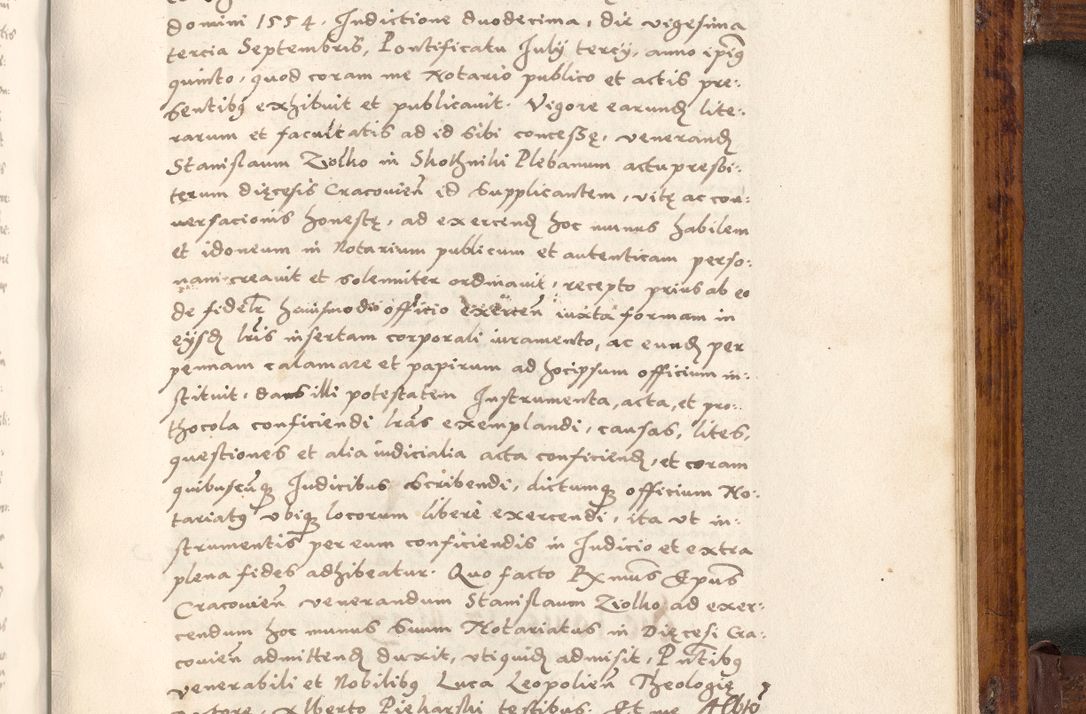 domini 1554. Indictione duodecima, die vigesima
tercia Septembris, Pontificatu Iulÿ tercÿ, anno ip̃iꝰ
quinto, quod coram me Notario publico et actis pre-
sentibꝰ exhibuit et publicauit. Vigore earund̃ lite-
rarum et facultatis ad id sibi concessę, venerand̃
Stanislaum Ziolko in Skothniki Plebanum actu presbi-
terum dięcesis Cracouien̄ id supplicantem, vitę ac con-
uersacionis honestę, ad exercend̃ hoc munus habilem
et idoneum in Notarium publicum et autenticam perso-
nam creauit et solemniter ordinauit, recepto prius ab eo
de fidelr̃ huiusmodi officio exercen̄ iuxta formam in
eÿsd̃ lr̃is insertam corporali iuramento, ac eund̃ per
pennam calamare et papirum ad hocipsum officium in-
stituit, dans illi potestatem Instrumenta, acta, et pro-
thocola conficiendi lr̃as exemplandi, causas, lites,
questiones et alia iudicialia acta conficiend̃, et coram
quibuscunq̃ Iudicibus scribendi, dictumq̃ officium No-
tariatꝰ vbiq̃ locorum libere exercendi, ita vt in-
strumentis per eum conficiendis in Iudicio et extra
plena fides adhibeatur. Quo facto Rx̃mus Ep̃us
Cracouien̄ venerandum Stanislaum Ziolko ad exer-
cendum hoc munus suum Notariatus in Dięcesi Cra-
couien̄ admittend̃ duxit, vtiquid̃ admisit, P̃ntibꝰ
venerabili et Nobilibꝰ Luca Leopolien̄ Theologię
Alberto Piekarski testibus. Et me